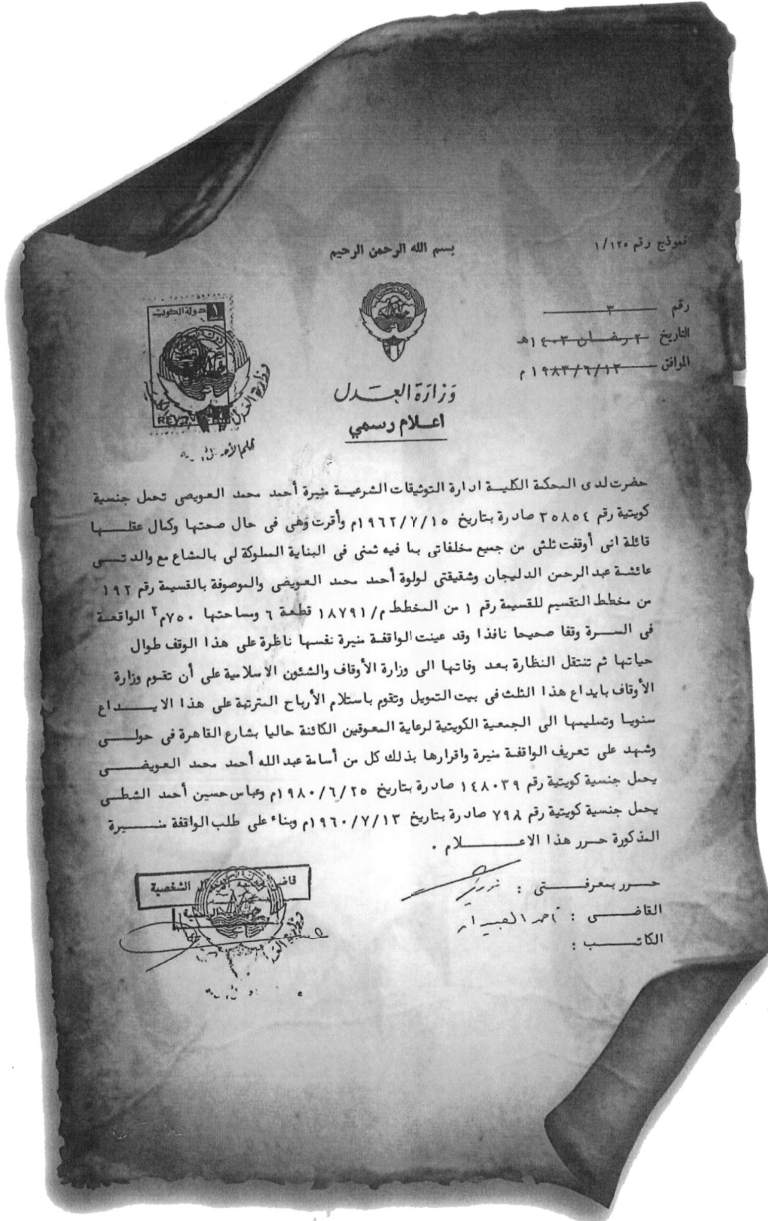 نموذج رقم ١/١٢٥
بسم الله الرحمن الرحيم
رقم ٣
التاريخ ٢ رمضان ١٤٠٣ هـ
الموافق ١٩٨٣/٦/١٣ م
دولة الكويت
وزارة العدل
اعلام رسمي
حضرت لدى المحكمة الكلية ادارة التوثيقات الشرعية منيرة أحمد محمد العويصى تحمل جنسية
كويتية رقم ٣٥٨٥٤ صادرة بتاريخ ١٩٦٢/٧/١٥م وأقرت وهى فى حال صحتها وكمال عقلها
قائلة انى أوقفت ثلثى من جميع مخلفاتى بما فيه ثمنى فى البناية المملوكة لى بالمشاع مع والدتى
عائشة عبد الرحمن الدليجان وشقيقتى لولوة أحمد محمد العويضى والموصوفة بالقسيمة رقم ١٩٢
من مخطط التقسيم للقسيمة رقم ١ من المخطط م/١٨٧٩١ قطعة ٦ ومساحتها ٧٥٠م٢ الواقعة
فى السرة وقفا صحيحا نافذا وقد عينت الواقفة منيرة نفسها ناظرة على هذا الوقف طوال
حياتها ثم تنتقل النظارة بعد وفاتها الى وزارة الأوقاف والشئون الاسلامية على أن تقوم وزارة
الأوقاف بايداع هذا الثلث فى بيت التمويل وتقوم باستلام الأرباح المترتبة على هذا الايداع
سنويا وتسليمها الى الجمعية الكويتية لرعاية المعوقين الكائنة حاليا بشارع القاهرة فى حولى
وشهد على تعريف الواقفة منيرة واقرارها بذلك كل من أسامة عبد الله أحمد محمد العويضى
يحمل جنسية كويتية رقم ١٤٨٠٣٩ صادرة بتاريخ ١٩٨٠/٦/٢٥م وعباس حسين أحمد الشطى
يحمل جنسية كويتية رقم ٧٩٨ صادرة بتاريخ ١٩٦٠/٧/١٣م وبناء على طلب الواقفة منيرة
المذكورة حرر هذا الاعلام .
حرر بمعرفتى :
القاضى :
الكاتب :
الشخصية